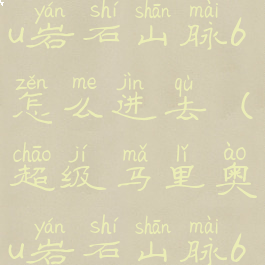 yán shí shān mài
u岩石山脉6
zěn me jìn qù
怎么进去(
chāo jí mǎ lǐ ào
超级马里奥
yán shí shān mài
u岩石山脉6